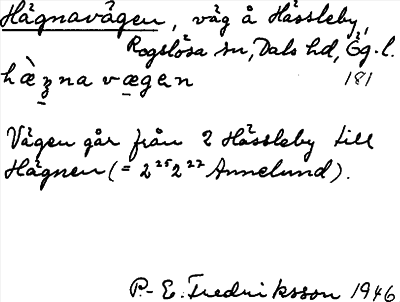 Hägnavägen, väg å Hässleby,
Rogslösa sn, Dals hd, Ög. l.
hæ̀ʒna vægen 181
Vägen går från 2 Hässleby till
Hägnen (= 2²⁵2²⁷ Annelund).
P.-E. Fredriksson 1946